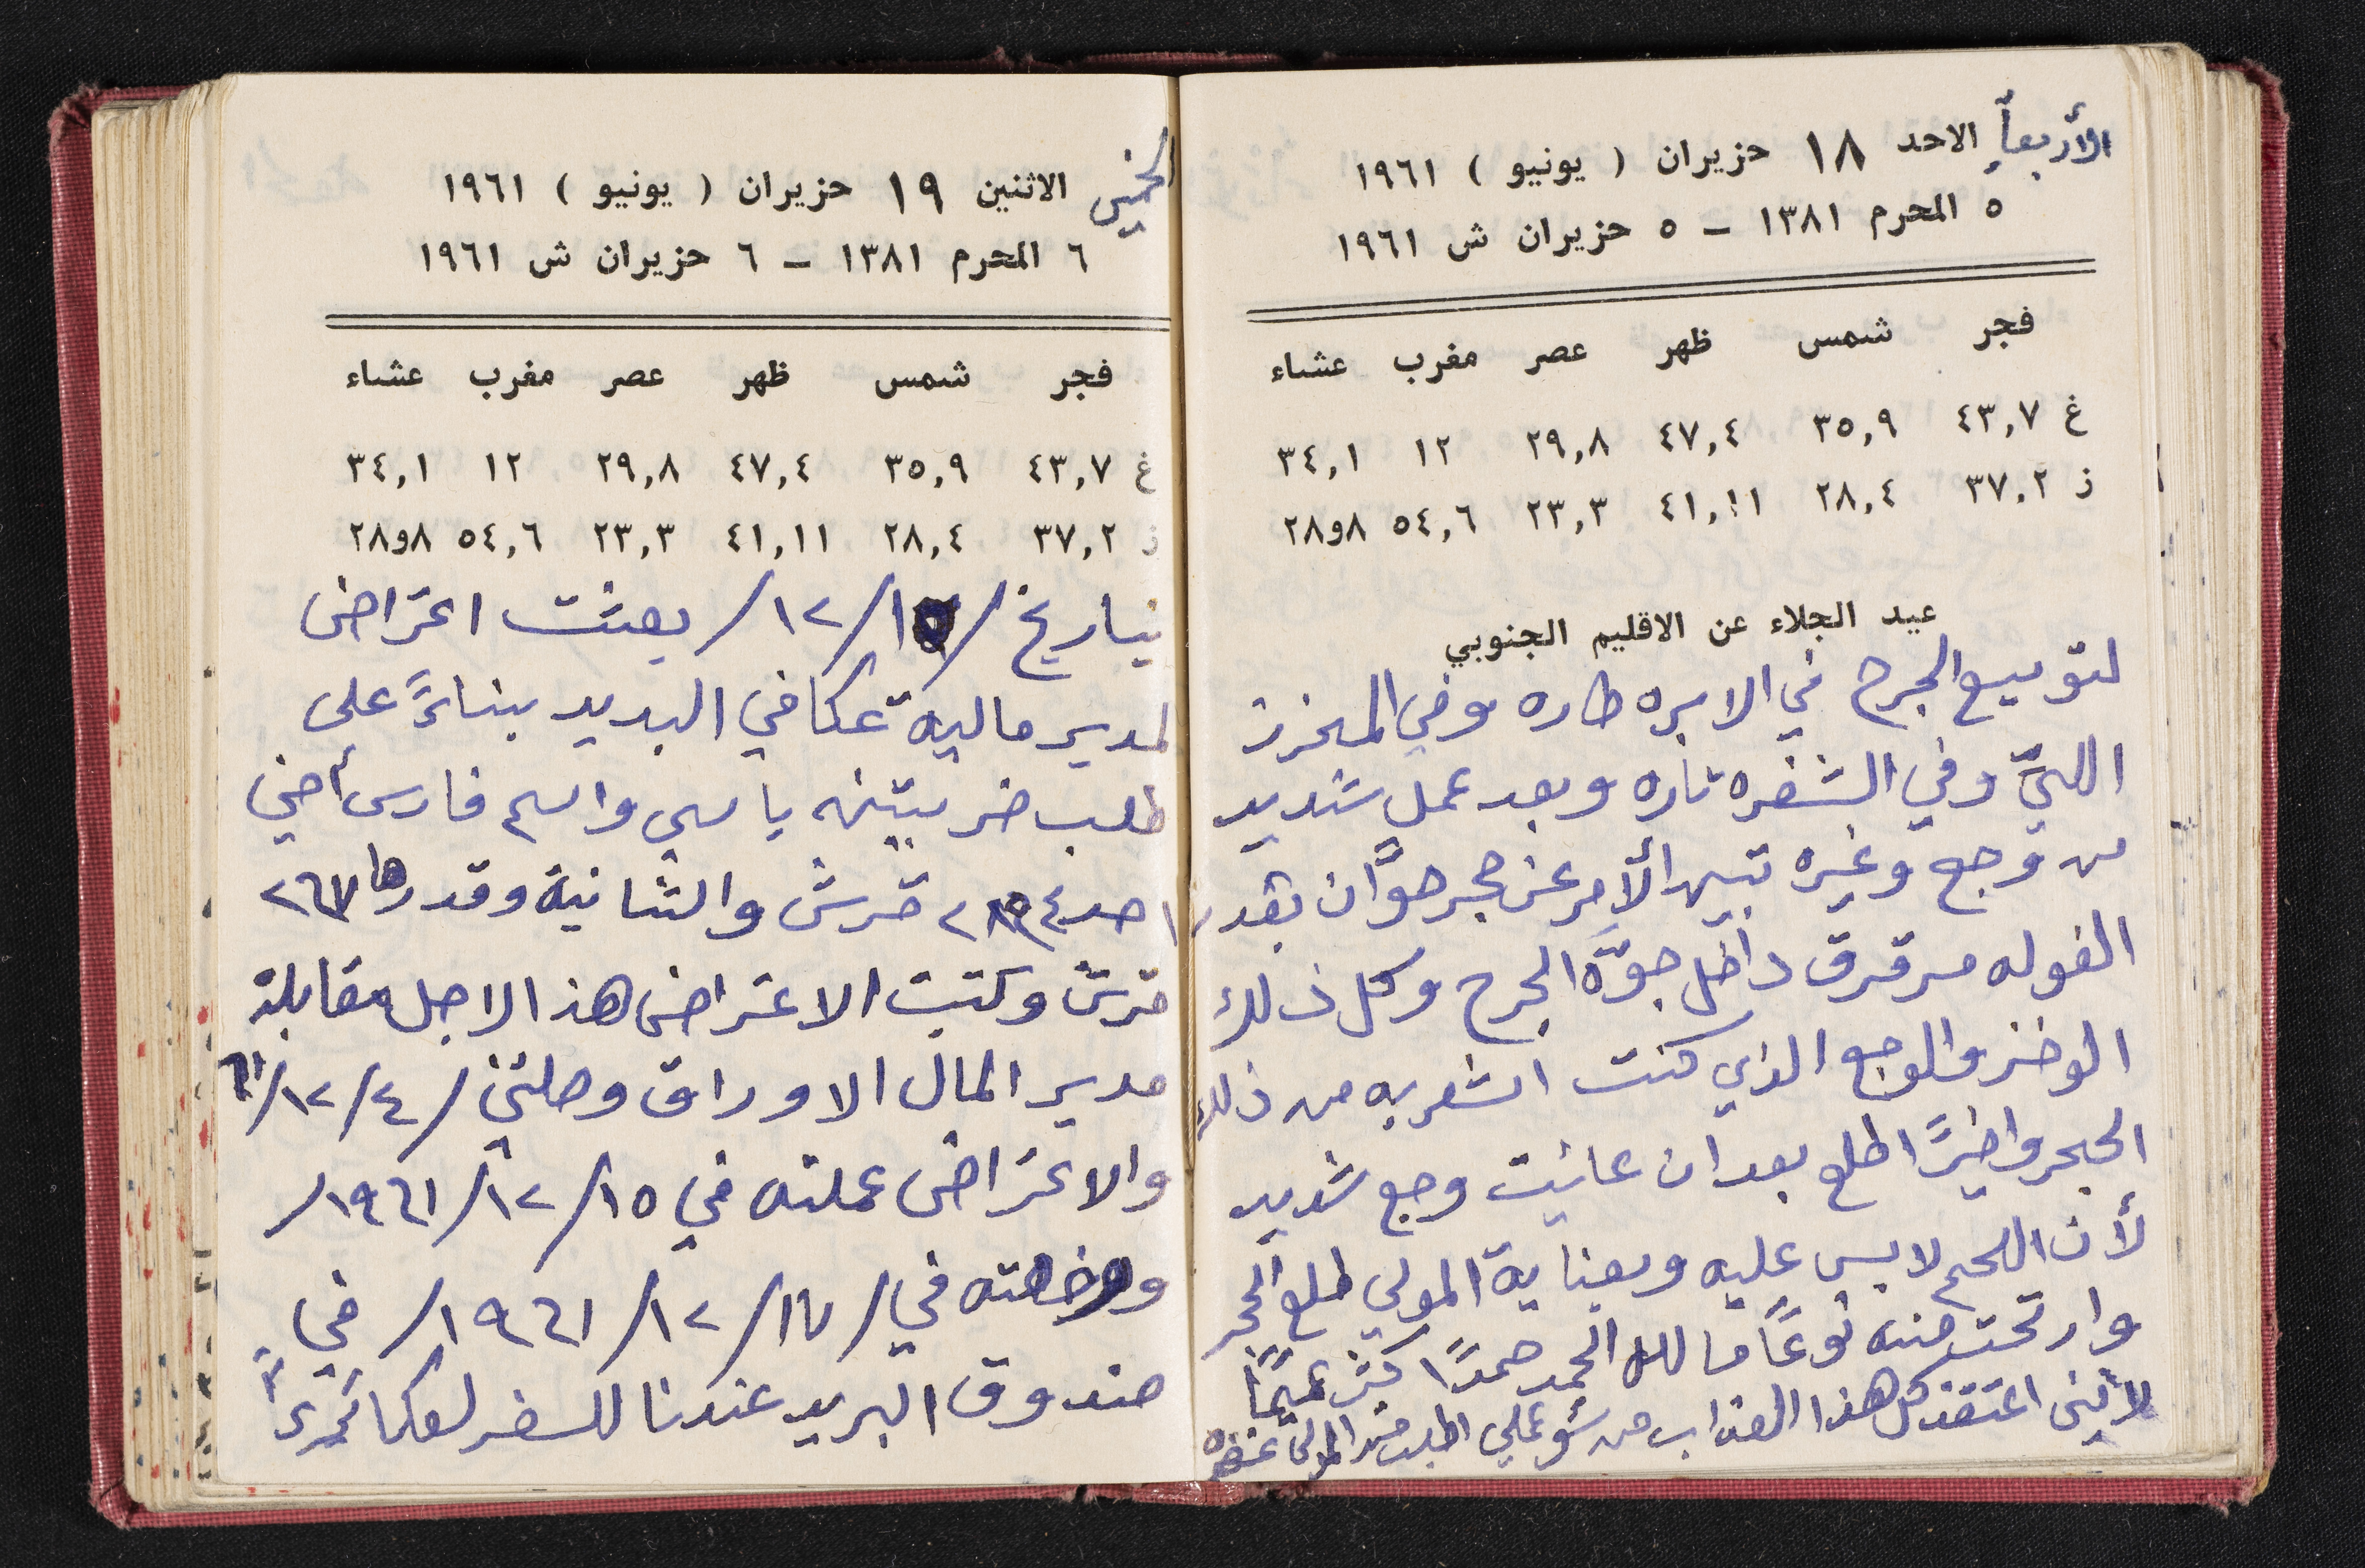 الأربعاء الاحد ١٨ حزيران ( يونيو ) ١٩٦١
٥ المحرم ١٣٨١ – ٥ حزيران ش ١٩٦١
فجر شمس ظهر عصر مغرب عشاء
غ ٤٣,٧ ٣٥,٩ ٤٧,٤ ٢٩,٨ ١٢ ٣٤,١
ز ٣٧,٢ ٢٨,٤ ٤١,١١ ٢٣,٣ ٥٤,٦ ٨و٢٨
عيد الجلاء عن الاقليم الجنوبي
لتوسيع الجرح في الابره طاره وفي المخرز
وفي الشفره تاره وبعد عمل شديد
من وجع وغيره تبين الأمر عن حجر صوّان بقدر
الفوله مرقرق داخل جوّة الجرح وكل ذلك
الوخز والوجع الذي كنت اشعر به من ذلك
الحجر واخيرًا طلع بعد ان عانيت وجع شديد
لأن اللحم لابس عليه وبعناية المولى طلع الحجر
وارتحت منه نوعًا ما لله الحمد حمدًا
لأنني اعتقد كل هذا العذاب من سؤ عملي اطلب من المولى
الخميس الاثنين ١٩ حزيران ( يونيو ) ١٩٦١
٦ المحرم ١٣٨١ – ٦ حزيران ش ١٩٦١
فجر شمس ظهر عصر مغرب عشاء
غ ٤٣,٧ ٣٥,٩ ٤٧,٤ ٢٩,٨ ١٢ ٣٤,١
ز ٣٧,٢ ٢٨,٤ ٤١,١١ ٢٣,٣ ٥٤,٦ ٨و٢٨
بتاريخ /١٥/١٢/ بعثت اعتراض
لمدير مالية عكا في البريد بناءً على
طلب ضريبتين باسمي واسم فارس أخي
قرش والثانية وقدرها ٢٦٧
قرش وكتبت الاعتراض هذا لاجل مقابلة
مدير المال الاوراق وصلتني /٤/١٢/٦١
والاعتراض عملته في ١٥/١٢/١٩٦١/
ووضعته في /١٧/١٢/١٩٦١/ في
صندوق البريد عندنا للسفر لعكا